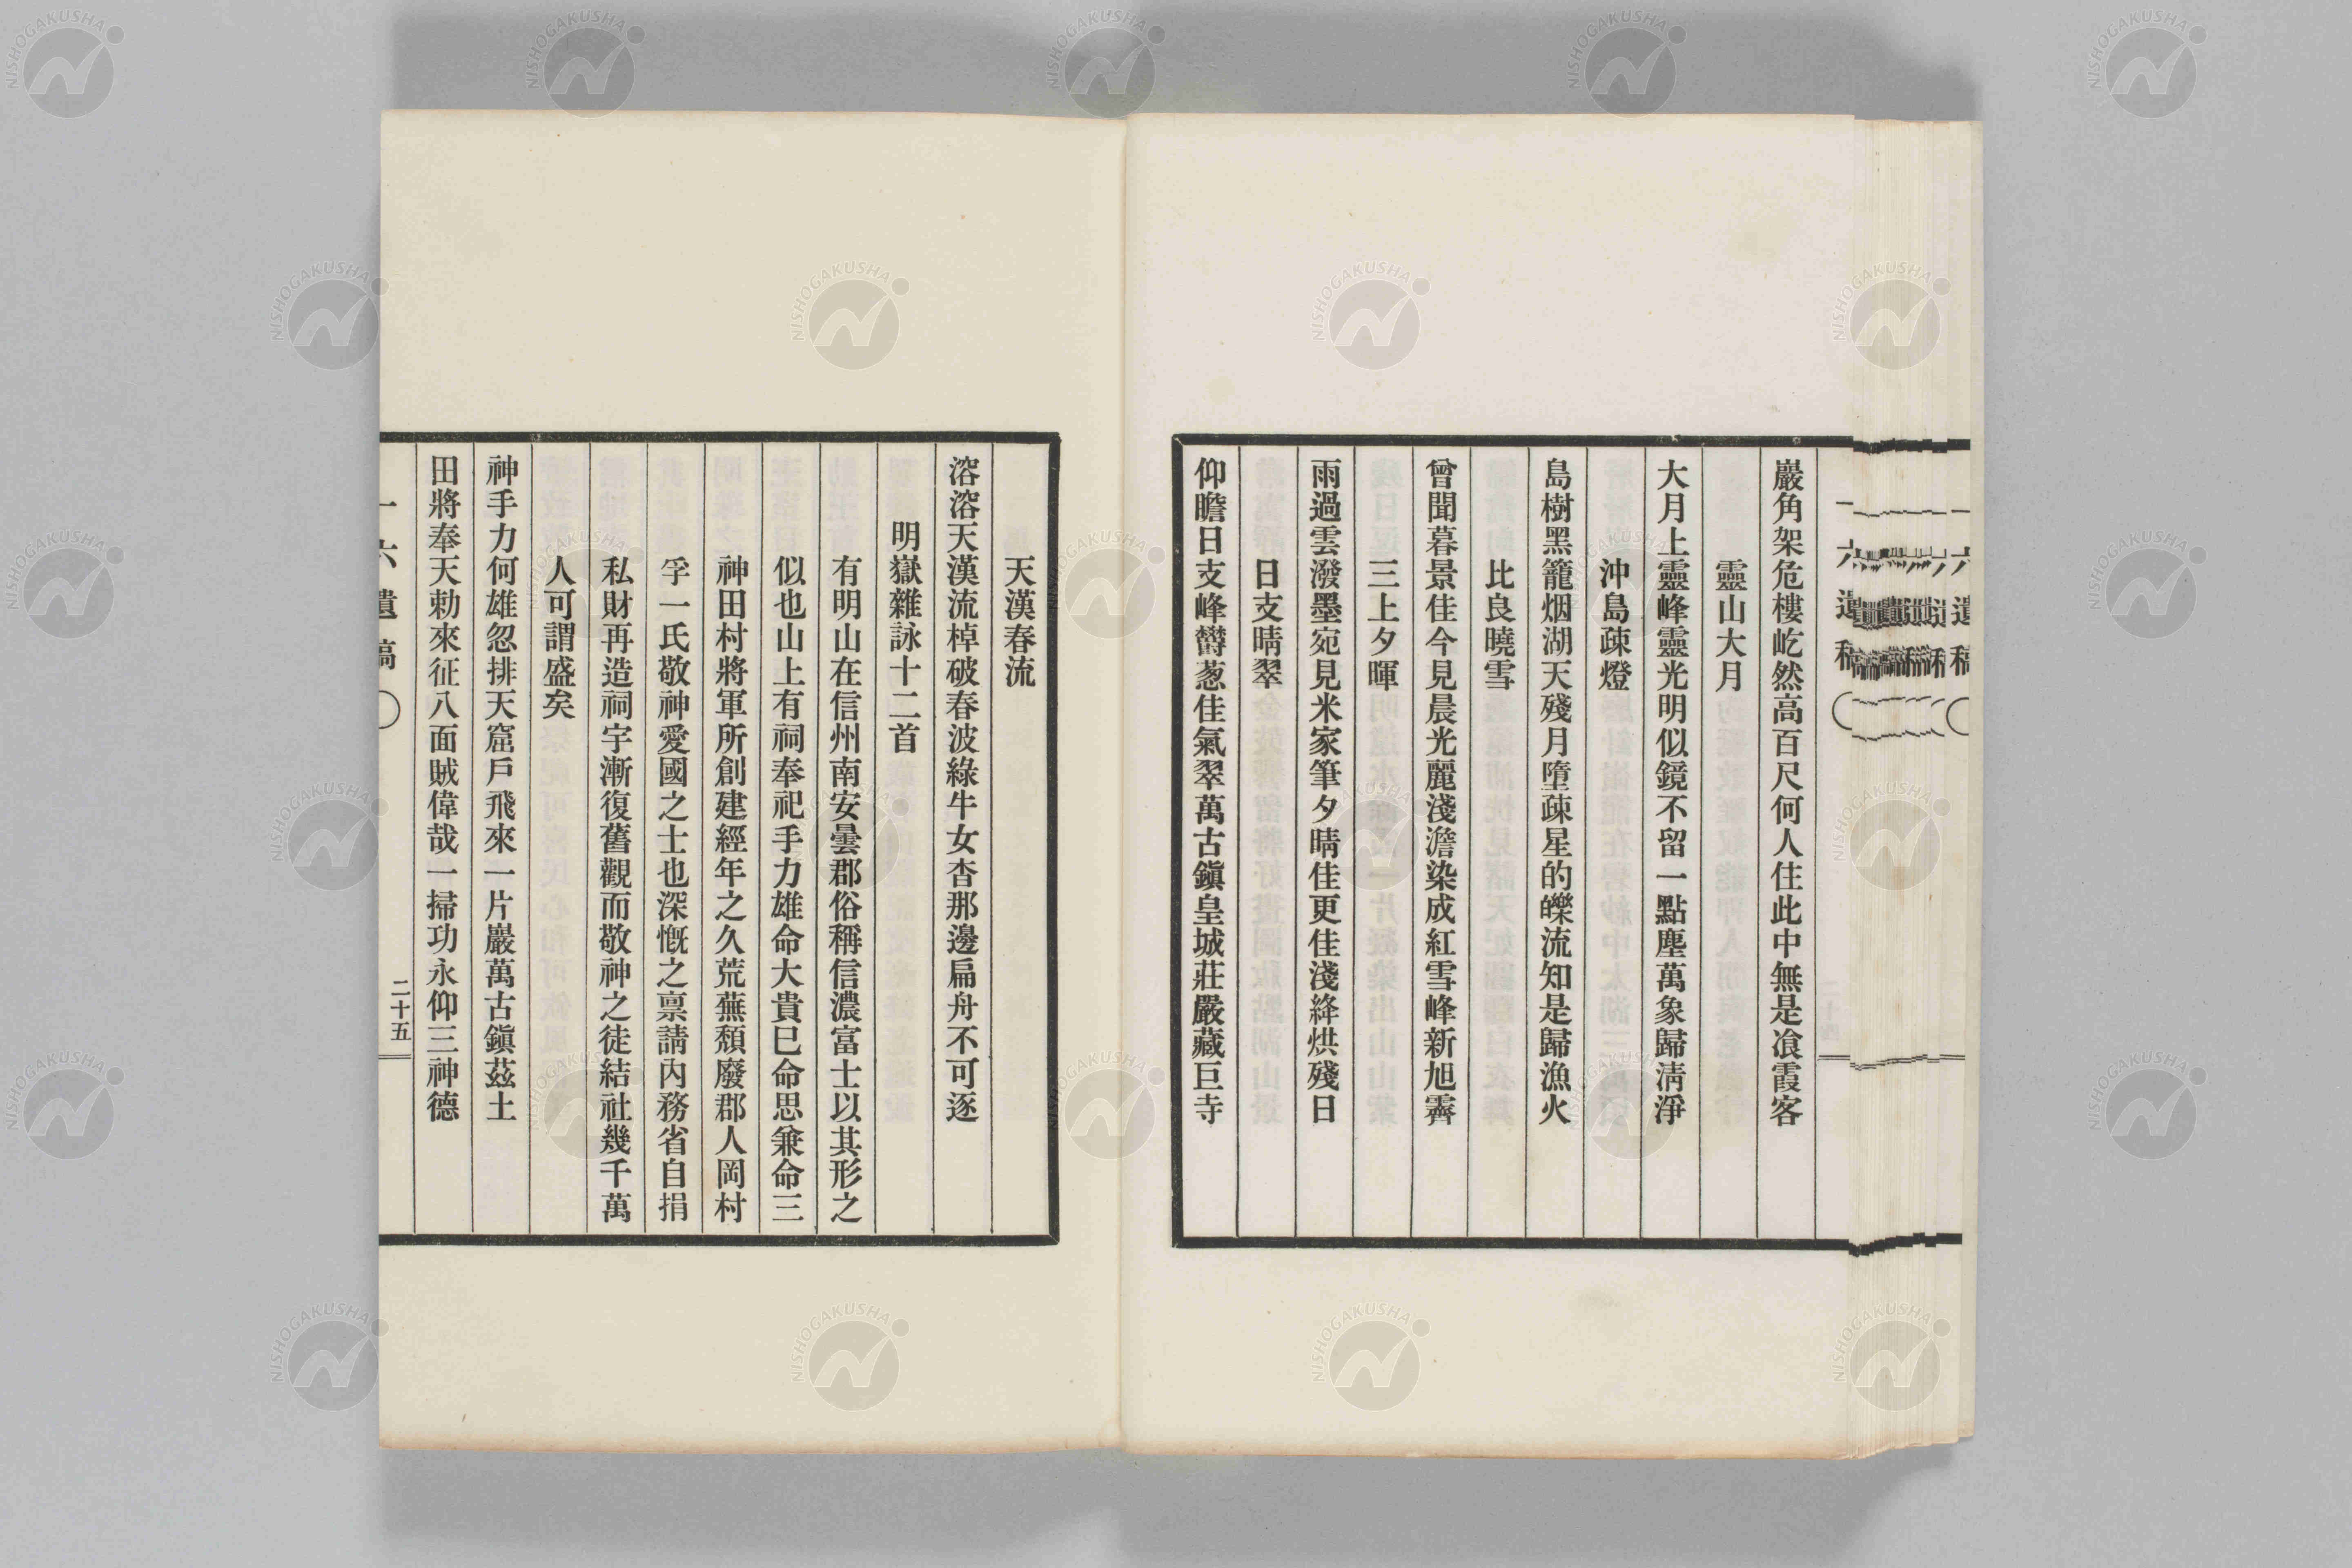 巖角架危樓屹然高百尺何人住此中無是飡霞客
靈山大月
大月上靈峰靈光明似鏡不留一點塵萬象歸淸淨
沖島疎燈
島樹黑籠烟湖天殘月墮疎星的皪流知是歸漁火
比良曉雪
曾聞暮景佳今見晨光麗淺澹染成紅雪峰新旭霽
三上夕暉
雨過雲潑墨宛見米家筆夕晴佳更佳淺絳烘殘日
日支晴翠
仰瞻日支峰欝葱佳氣翠萬古鎭皇城莊嚴藏巨寺
天漢春流
溶溶天漢流棹破春波綠牛女杳那邊扁舟不可逐
明嶽雜詠十二首
有明山在信州南安曇郡俗稱信濃富士以其形之
似也山上有祠奉祀手力雄命大貴巳命思兼命三
神田村將軍所創建經年之久荒蕪頹廢郡人岡村
孚一氏敬神愛國之士也深慨之禀請內務省自捐
私財再造祠宇漸復舊觀而敬神之徒結社幾千萬
人可謂盛矣
神手力何雄忽排天窟戶飛來一片巖萬古鎭茲土
田將奉天勅來征八面賊偉哉一掃功永仰三神德
一六遺稿
二十五
NISHOGAKUSHA